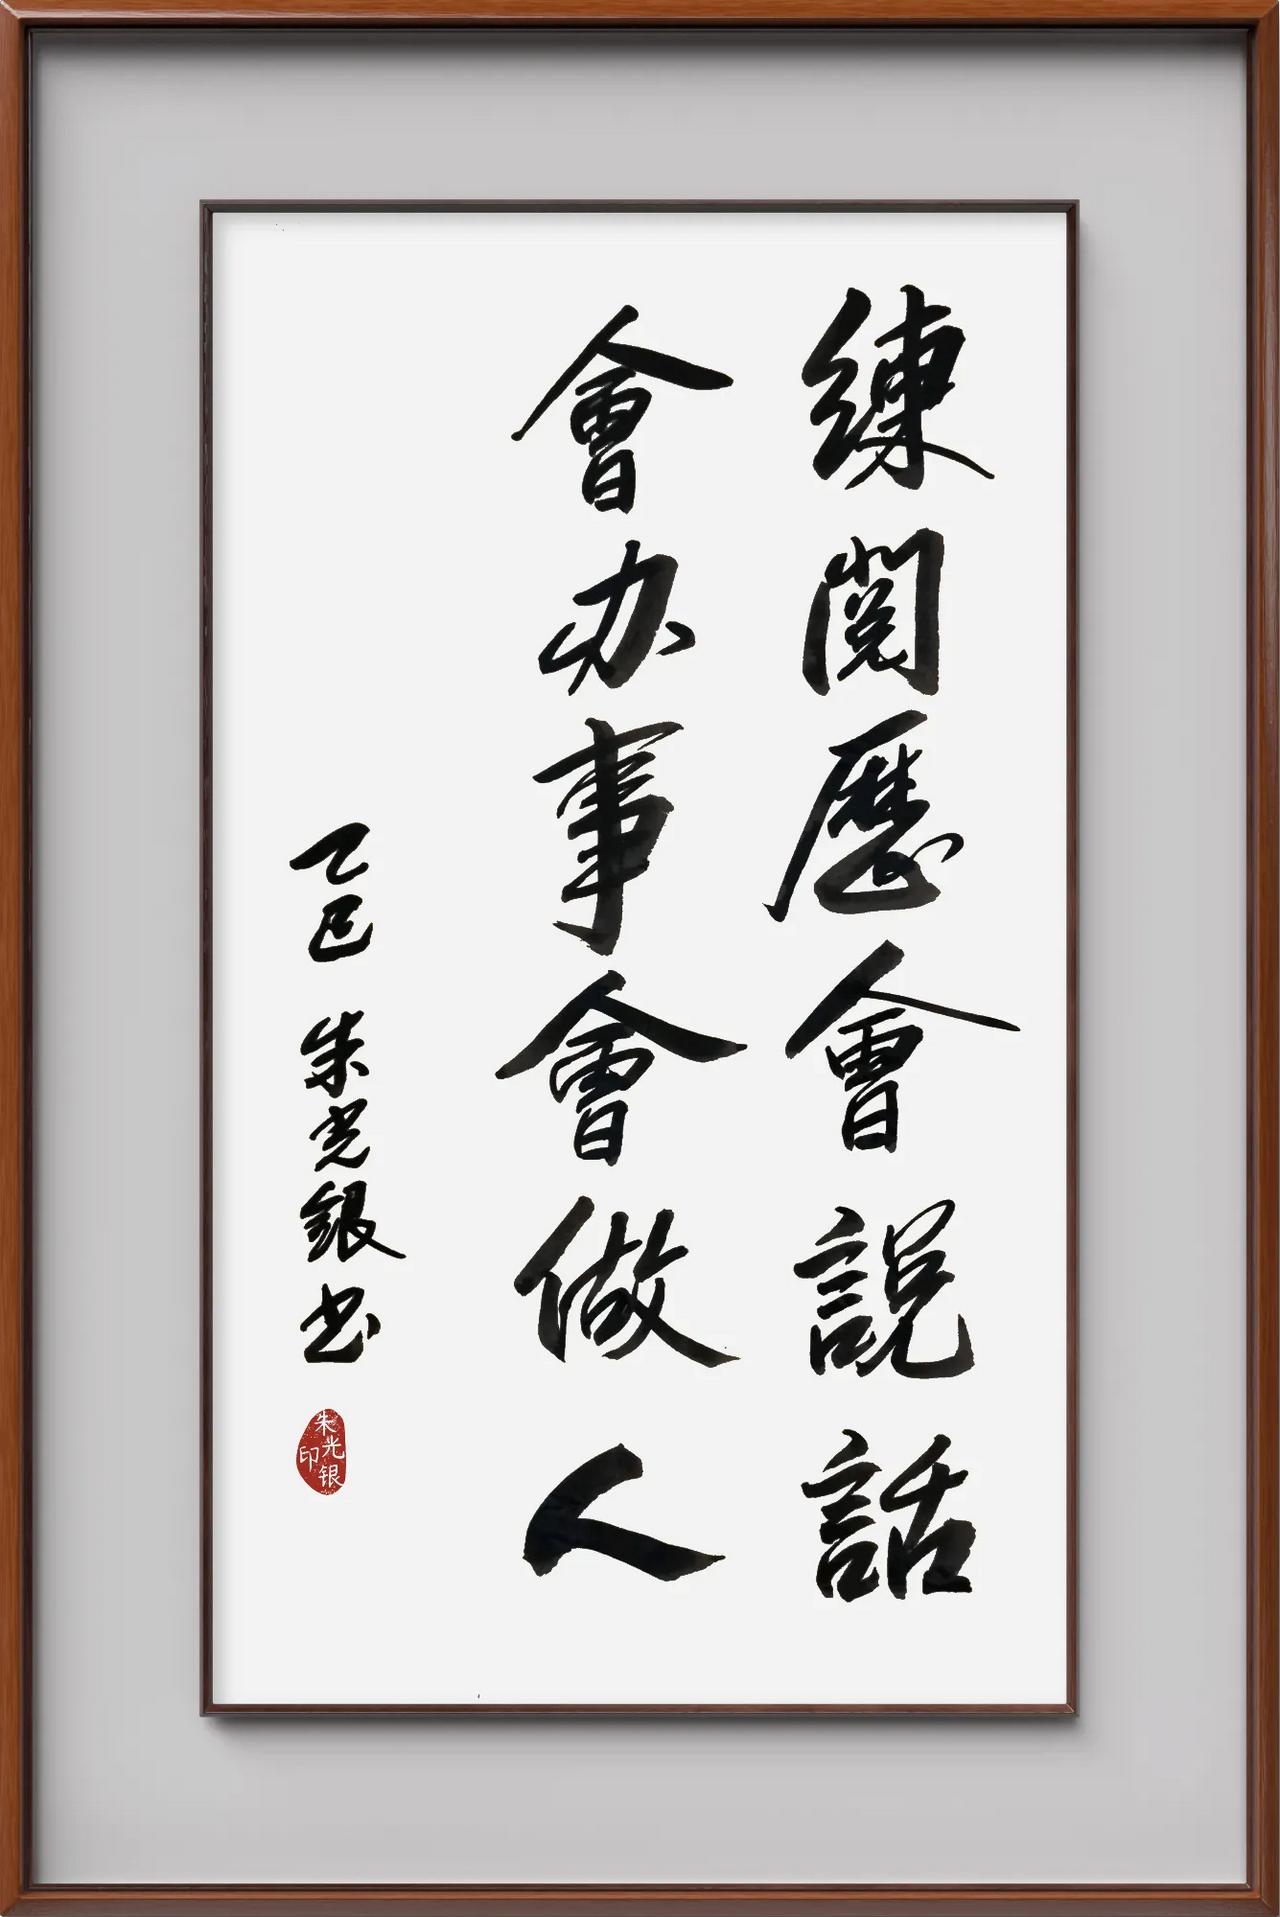 練閲歷會説話
會办事會做人
乙巳 朱光銀书
朱光银
印